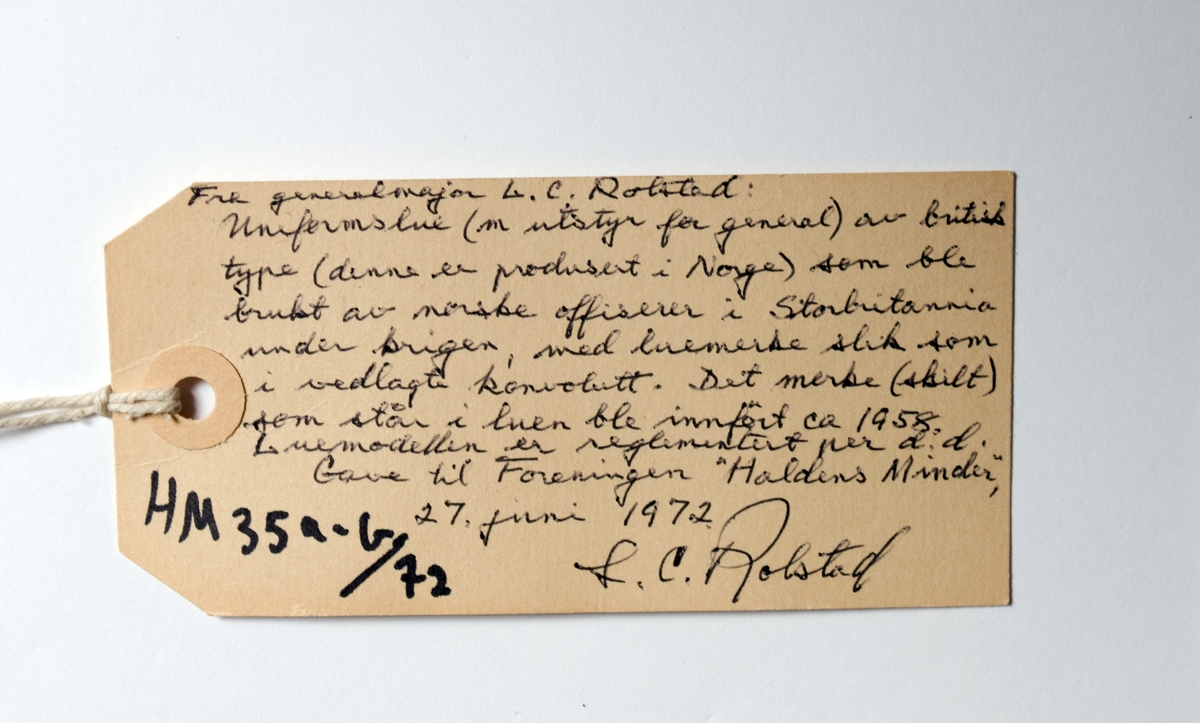 Fra generalmajor L. C. Rolstad:
Uniformslue (m utstyr for general) av britisk
type (denne er produsert i Norge) som ble
brukt av norske offiserer i Storbritannia
under krigen, med luemerke slik som
i vedlagte konvolutt. Det merke (skilt)
som står i luen ble innført ca 1958.
Luemodellen er reglementert per d.d.
Gave til Foreningen "Haldens Minder",
27. juni 1972
L. C. Rolstad
HM 35a-b/72